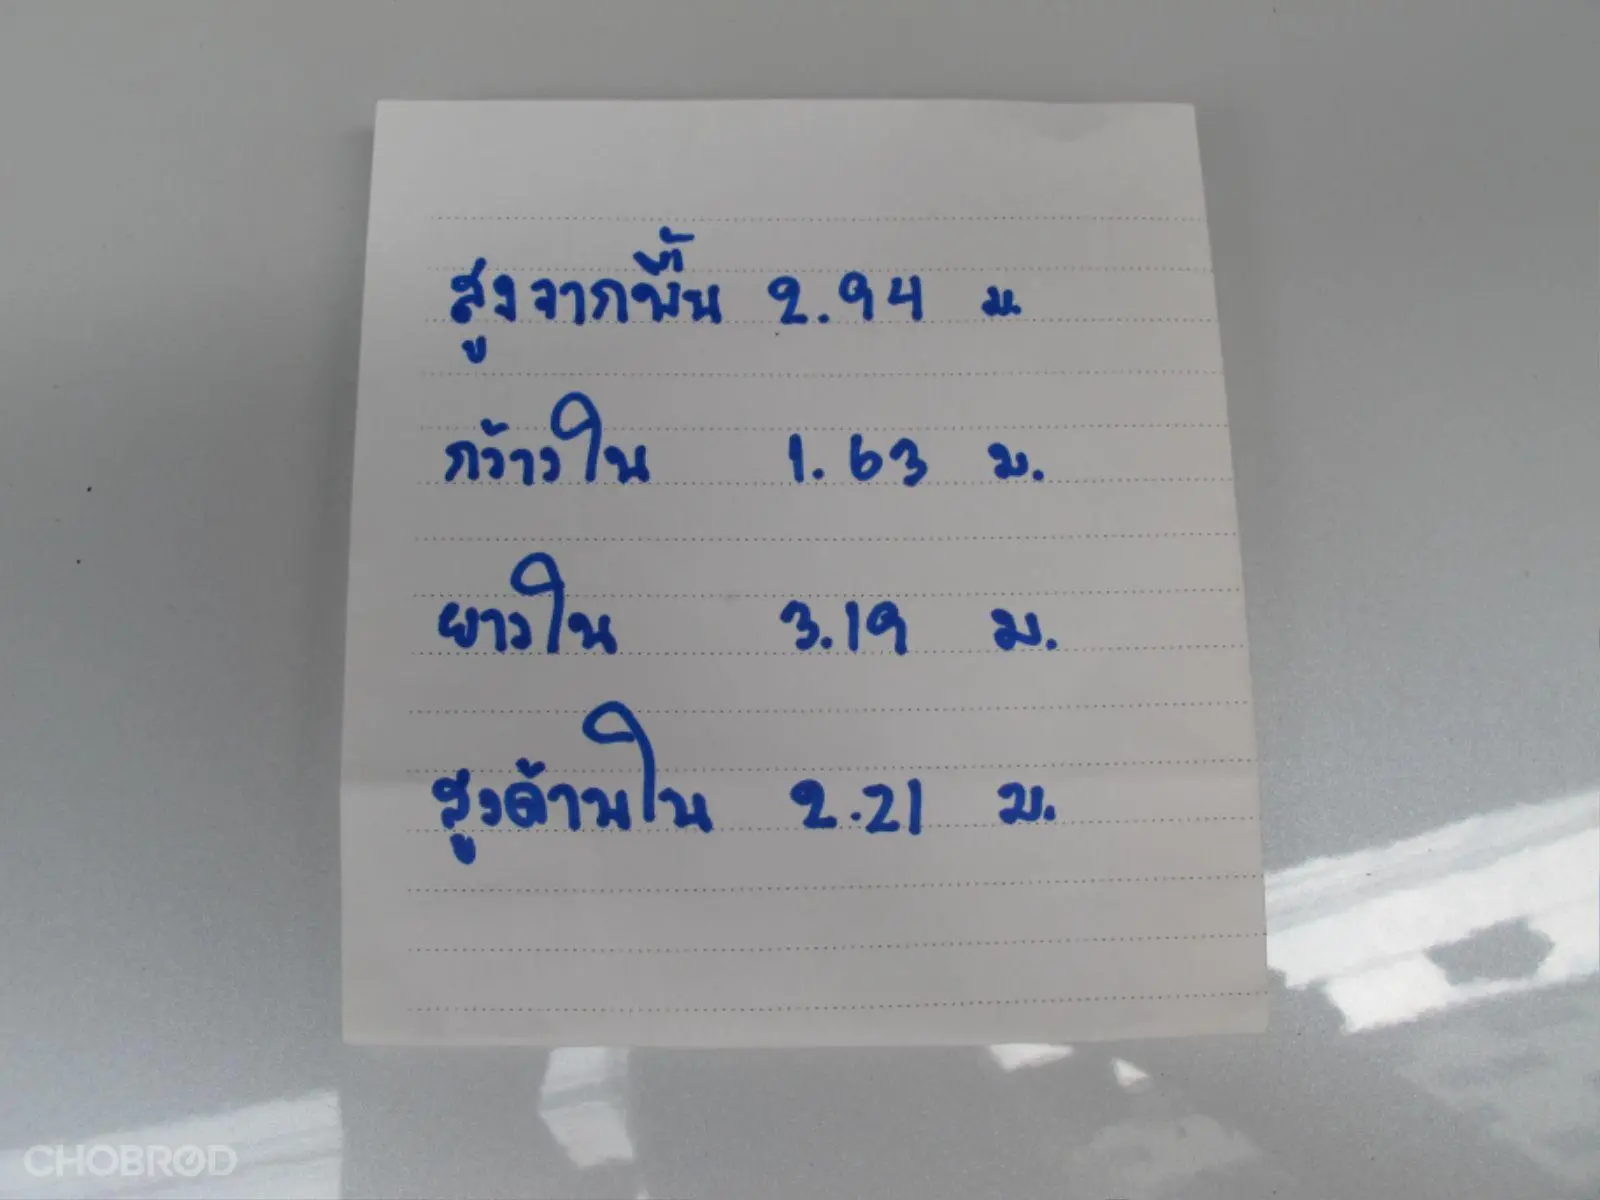 สูงจากพื้น 2.94 ม
กว้างใน 1.63 ม.
ยาวใน 3.19 ม.
สูงด้านใน 2.21 ม.
CHOBROD